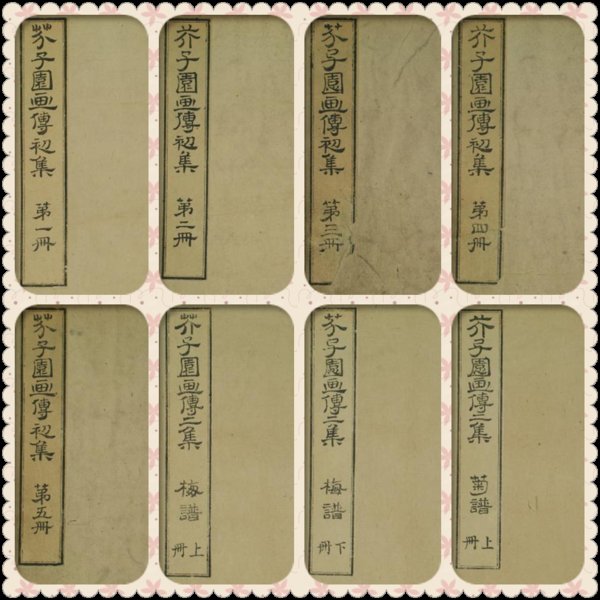 芥子園画傳初集 第一冊
芥子園画傳初集 第二冊
芥子園画傳初集 第三冊
芥子園画傳初集 第四冊
芥子園画傳初集 第五冊
芥子園画傳二集 梅譜 上冊
芥子園画傳二集 梅譜 下冊
芥子園画傳二集 菊譜 上冊